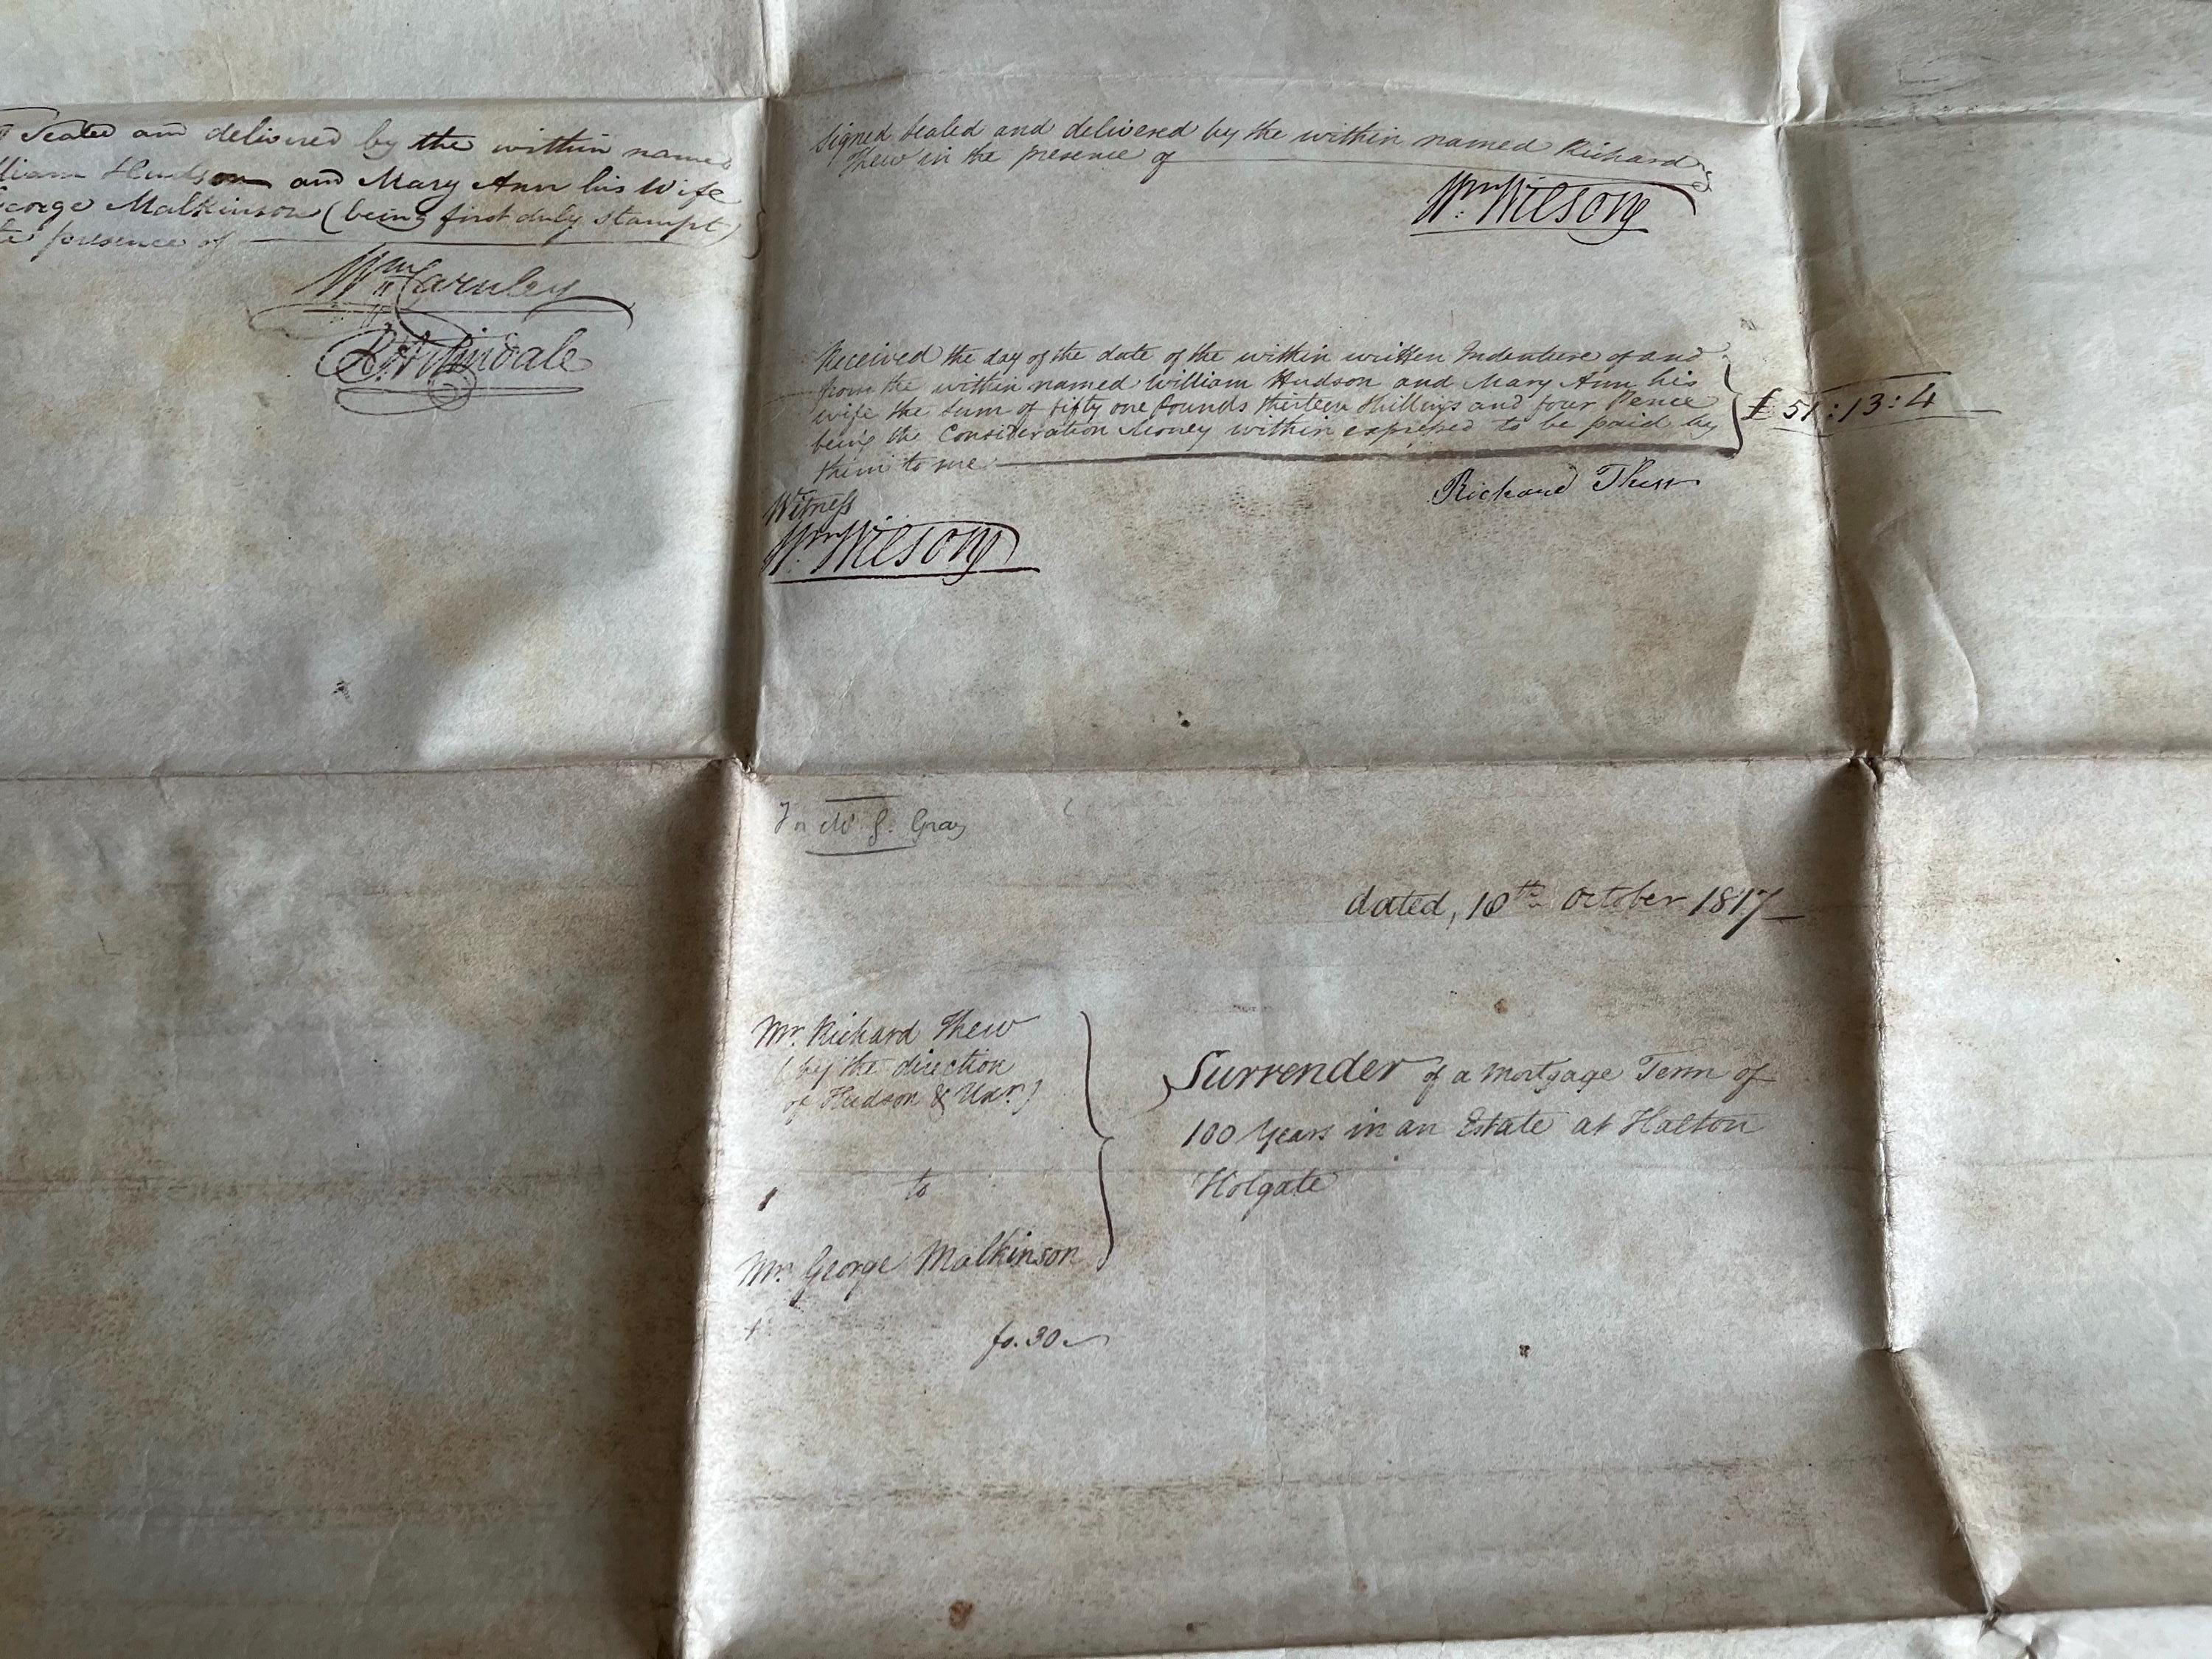 Sealed and delivered by the within named
William Hudson and Mary Ann his Wife
George Malkinson (being first duly stampt)
presence of
Wm Carnley
Signed Sealed and delivered by the within named Richard
Thew in the presence of
Wm Wilson
Received the day of the date of the within written Indenture of and
from the within named William Hudson and Mary Ann his
wife the Sum of fifty one Pounds thirteen Shillings and four Pence
being the Consideration Money within expressed to be paid by
them to me
£ 51:13:4
Richard Thew
Witness
Wm Wilson
Gray
dated, 10th October 1817
Mr. Richard Thew
(by the direction
of Hudson & Uxr.)
to
Mr. George Malkinson
fo. 30
Surrender of a Mortgage Term of
100 Years in an Estate at Halton
Holgate